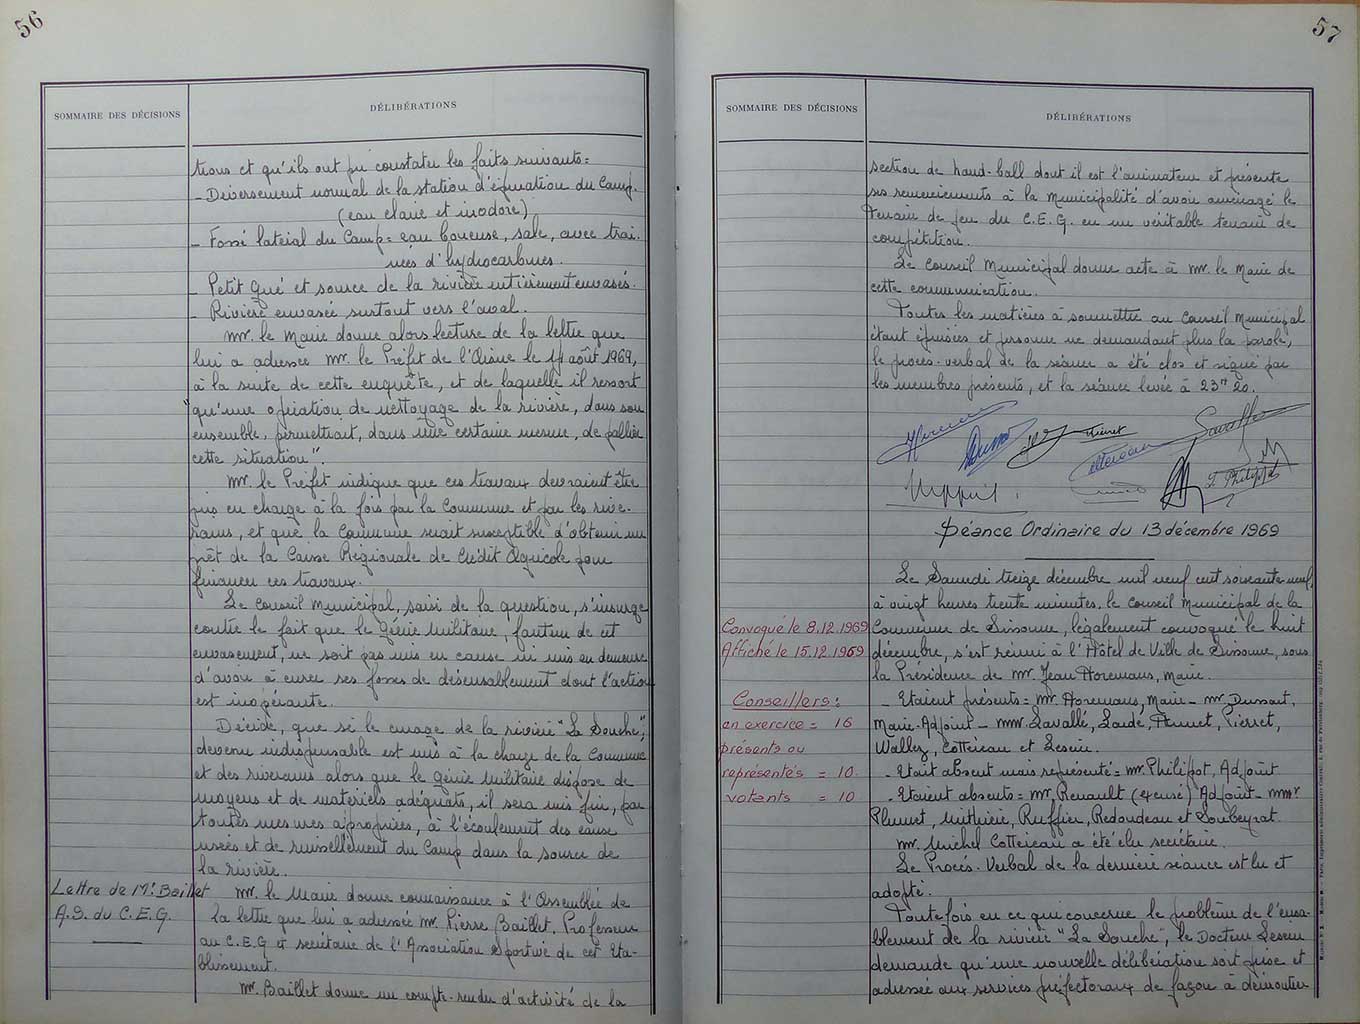 56
SOMMAIRE DES DÉCISIONS
DÉLIBÉRATIONS
tions et qu'ils ont pu constater les faits suivants =
- Déversement normal de la station d'épuration du Camp.
(eau claire et inodore)
- Fossé latéral du Camp = eau boueuse, sale, avec trai-
nées d'hydrocarbures.
- Petit Gué et source de la rivière entièrement envasés.
- Rivière envasée surtout vers l'aval.
Mr. le Maire donne alors lecture de la lettre que
lui a adressée Mr. le Préfet de l'Aisne le août 1969,
à la suite de cette enquête, et de laquelle il ressort
"qu'une opération de nettoyage de la rivière, dans son
ensemble, permettrait, dans une certaine mesure, de pallier
cette situation".
Mr. le Préfet indique que ces travaux devraient être
pris en charge à la fois par la Commune et par les rive-
rains, et que la Commune serait susceptible d'obtenir un
prêt de la Caisse Régionale de Crédit Agricole pour
financer ces travaux.
Le Conseil Municipal, saisi de la question, s'insurge
contre le fait que le Génie Militaire, fauteur de cet
envasement, ne soit pas mis en cause ni mis en demeure
d'avoir à curer ses fosses de désensablement dont l'action
est inopérante.
Décide, que si le curage de la rivière "La Souche",
devenu indispensable est mis à la charge de la Commune
et des riverains alors que le Génie Militaire dispose de
moyens et de matériels adéquats, il sera mis fin, par
toutes mesures appropriées, à l'écoulement des eaux
usées et de ruissellement du Camp dans la source de
la rivière.
Lettre de Mr. Baillet
A.S. du C.E.G.
Mr. le Maire donne connaissance à l'Assemblée de
la lettre que lui a adressée Mr. Pierre Baillet, Professeur
au C.E.G et secrétaire de l'Association Sportive de cet Eta-
blissement.
Mr. Baillet donne un compte-rendu d'activité de la
57
SOMMAIRE DES DÉCISIONS
DÉLIBÉRATIONS
section de hand-ball dont il est l'animateur et présente
ses remerciements à la municipalité d'avoir aménagé le
terrain de jeu du C.E.G. en un véritable terrain de
compétition.
Le Conseil Municipal donne acte à Mr. le Maire de
cette communication.
Toutes les matières à soumettre au Conseil Municipal
étant épuisées et personne ne demandant plus la parole,
le procès-verbal de la séance a été clos et signé par
les membres présents, et la séance levée à 23H 20.
J. Philippot
Séance Ordinaire du 13 décembre 1969
Le Samedi treize décembre mil neuf cent soixante neuf,
à vingt heures trente minutes, le Conseil Municipal de la
Convoqué le 8.12.1969
Commune de Sissonne, légalement convoqué le huit
Affiché le 15.12.1969
décembre, s'est réuni à l'Hôtel de Ville de Sissonne, sous
la Présidence de Mr. Jean Horemans, Maire.
Conseillers :
en exercice = 16
présents ou
représentés = 10.
votants = 10
- Etaient présents = Mr. Horemans, Maire - Mr. Dussart,
Maire-Adjoint - MM. Lavallé, Laidé, Pierret,
Wallez, Cottereau et Leseur.
- Etait absent mais représenté = Mr. Philipot, Adjoint
- Etaient absents = Mr. Renault (excusé) Adjoint - MMrs
Plumet, Ruffier, Redoudeau et Soubeyrat.
Mr. Michel Cottereau a été élu secrétaire.
Le Procès-Verbal de la dernière séance est lu et
adopté.
Toutefois en ce qui concerne le problème de l'ensa-
blement de la rivière "La Souche", le Docteur Leseur
demande qu'une nouvelle délibération soit prise et
adressée aux services préfectoraux de façon à démontrer